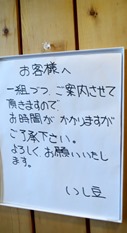 お客様へ
一組づつ、ご案内させて
頂きますので
お時間が かかりますが
ご了承下さい。
よろしくお願いいたし
ます。
いし豆